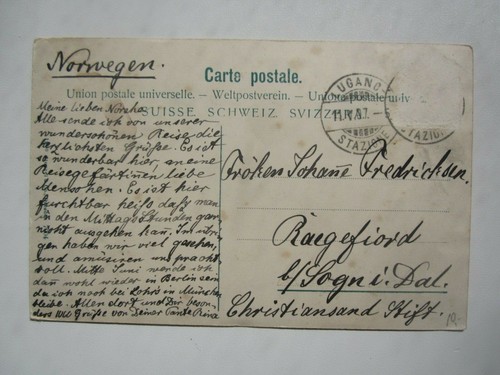 Norwegen.
Carte postale.
Union postale universelle. — Weltpostverein. — Unione postale univ
SUISSE. SCHWEIZ. SVIZZ
LUGANO
STAZIONE
STAZIONE
Meine lieben
Alle sende ich von unserer
wunderschönen Reise die
herzlichsten Grüße. Es ist
so wunderbar hier, eine
Reisegefärtinen liebe
Menschen. Es ist hier
furchtbar heiß daß man
in den Mittagsstunden gar
nicht ausgehen kan. Im übri-
gen haben wir viel gesehen,
und amüsiren uns pracht
voll. Mitte Juni werde ich
dan wohl wieder in Berlin sein
da ich noch bei in München
bleibe. Allen dort und Dir beson-
ders Grüße von Deiner Tante
Fröken Johane Fredricksen.
Raegefiord
b/Sogn i. Dal.
Christiansand Stift.
10.-